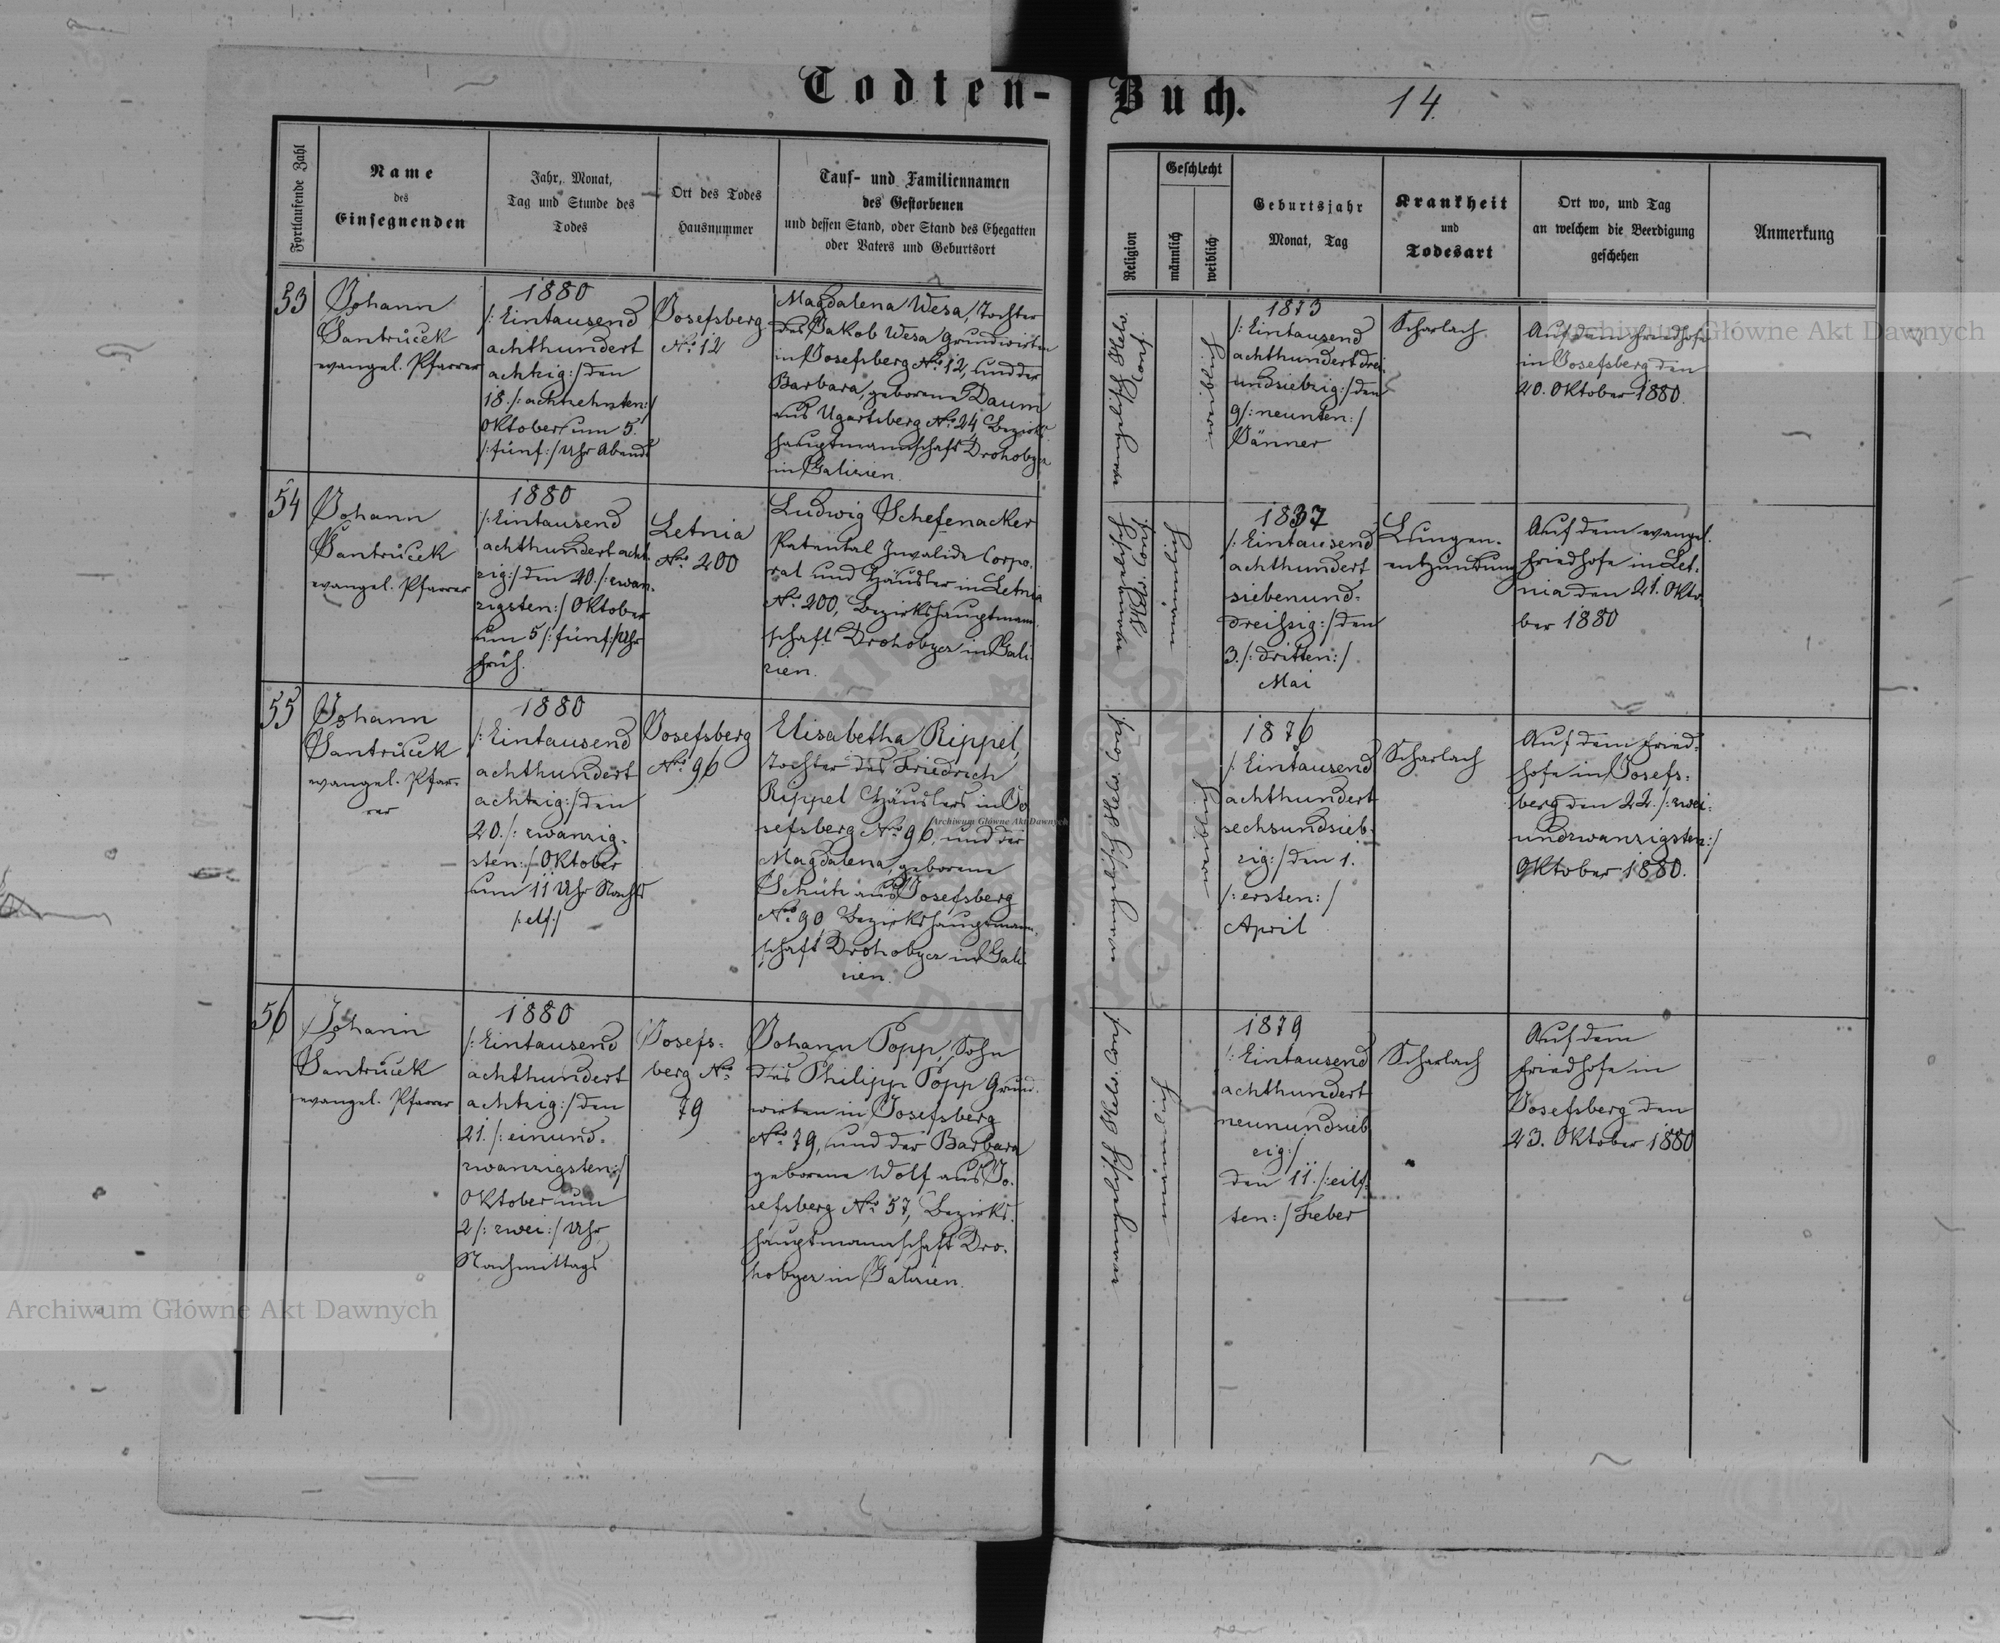 Todten-Buch.
14.
Fortlaufende Zahl
Name
des
Einsegnenden
Jahr, Monat,
Tag und Stunde des
Todes
Ort des Todes
Hausnummer
Tauf- und Familiennamen
des Gestorbenen
und dessen Stand, oder Stand des Ehegatten
oder Vaters und Geburtsort
Religion
Geschlecht
männlich
weiblich
Geburtsjahr
Monat, Tag
Krankheit
und
Todesart
Ort wo, und Tag
an welchem die Beerdigung
geschehen
Anmerkung
53
Johann
Santrůček
evangel. Pfarrer
1880
/: Eintausend
achthundert
achtzig :/ den
18. /: achtzehnten :/
Oktober um 5.
/: fünf :/ Uhr Abends
Josefsberg
No. 12
Magdalena Wesa, Tochter
des Jakob Wesa Grundwirten
in Josefsberg No. 12, und der
Barbara, geborene Daum
aus Ugartsberg No. 24 Bezirks-
hauptmannschaft Drohobycz
in Galizien.
evangelisch Helv.
Conf.
weiblich
1873
/: Eintausend
achthundert drei-
undsiebzig :/ den
9 /: neunten :/
Jänner
Scharlach
Auf dem Friedhofe
in Josefsberg den
20. Oktober 1880.
54
Johann
Santrůček
evangel. Pfarrer
1880
/: Eintausend
achthundert acht-
zig :/ den 20. /: zwan-
zigsten :/ Oktober
um 5 /: fünf :/ Uhr
früh.
Letnia
No. 200
Ludwig Schefenacker
Patental Invalide Corpo-
ral und Häusler in Letnia
No. 200, Bezirkshauptmann-
schaft Drohobycz in Gali-
zien.
evangelisch
Helv. Conf.
männlich
1837
/: Eintausend
achthundert
siebenund-
dreißig :/ den
3. /: dritten :/
Mai
Lungen-
entzündung
Auf dem evangel.
Friedhofe in Let-
nia den 21. Okto-
ber 1880
55
Johann
Santrůček
evangel. Pfar-
rer
1880
/: Eintausend
achthundert
achtzig :/ den
20. /: zwanzig-
sten :/ Oktober
um 11 Uhr Nachts
/: elf :/
Josefsberg
No. 96
Elisabetha Rippel,
Tochter des Friedrich
Rippel Häuslers in Jo-
sefsberg No. 96, und der
Magdalena, geborene
Schütz aus Josefsberg
No. 90 Bezirkshauptmann-
schaft Drohobycz in Gali-
zien.
evangelisch Helv. Conf.
weiblich
1876
/: Eintausend
achthundert
sechsundsieb-
zig :/ den 1.
/: ersten :/
April
Scharlach
Auf dem Fried-
hofe in Josefs-
berg den 22. /: zwei-
undzwanzigsten :/
Oktober 1880.
56
Johann
Santrůček
evangel. Pfarrer
1880
/: Eintausend
achthundert
achtzig :/ den
21. /: einund-
zwanzigsten :/
Oktober um
2 /: zwei :/ Uhr
Nachmittags
Josefs-
berg No.
79
Johann Popp, Sohn
des Philipp Popp Grund-
wirten in Josefsberg
No. 79, und der Barbara
geborene Wolf aus Jo-
sefsberg No. 57, Bezirks-
hauptmannschaft Dro-
hobycz in Galizien.
evangelisch Helv. Conf.
männlich
1879
/: Eintausend
achthundert
neunundsieb
zig :/
den 11. /: eilf-
ten :/ Feber
Scharlach
Auf dem
Friedhofe in
Josefsberg den
23. Oktober 1880
Archiwum Główne Akt Dawnych
Archiwum Główne Akt Dawnych
Archiwum Główne Akt Dawnych